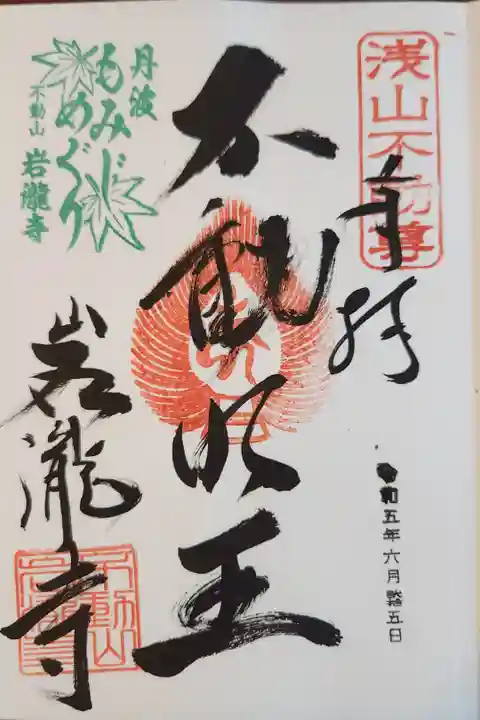 浅山不動尊
奉拝
令和五年六月
五日
不動明王
丹波
もみじ
めぐり
不動山
岩瀧寺
岩瀧寺
不動山